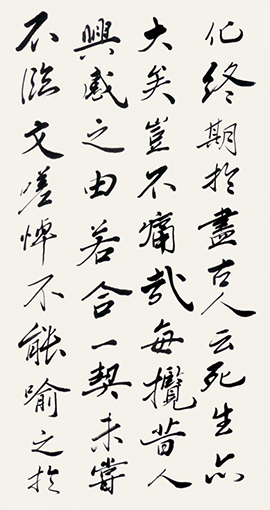 化終期於盡古人云死生亦
大矣豈不痛哉每攬昔人
興感之由若合一契未嘗
不臨文嗟悼不能喻之於